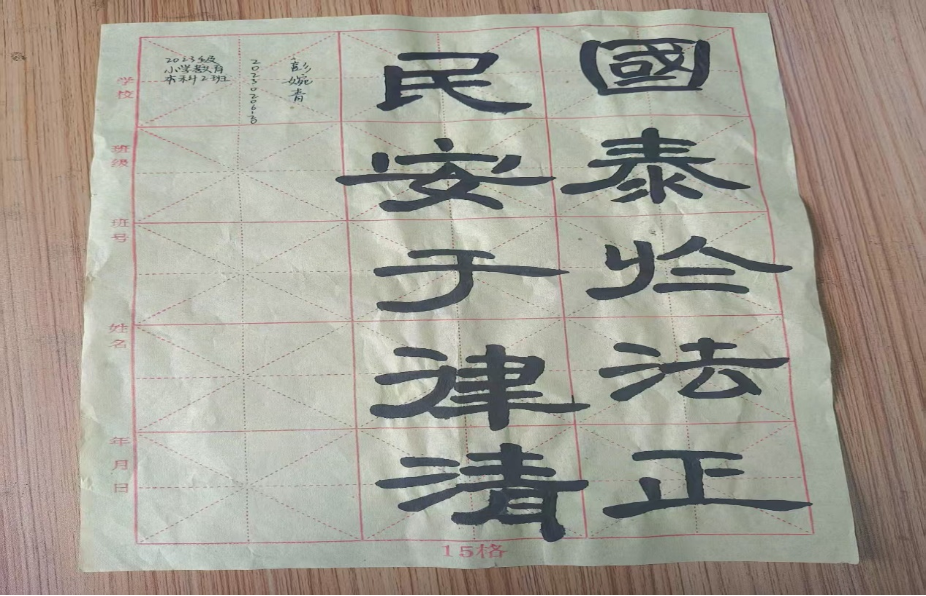 國泰於法正
民安于律清
彭婉青
2023020613
2023级
小学教育
本科2班
学校
班级
班号
姓名
年月日
15格